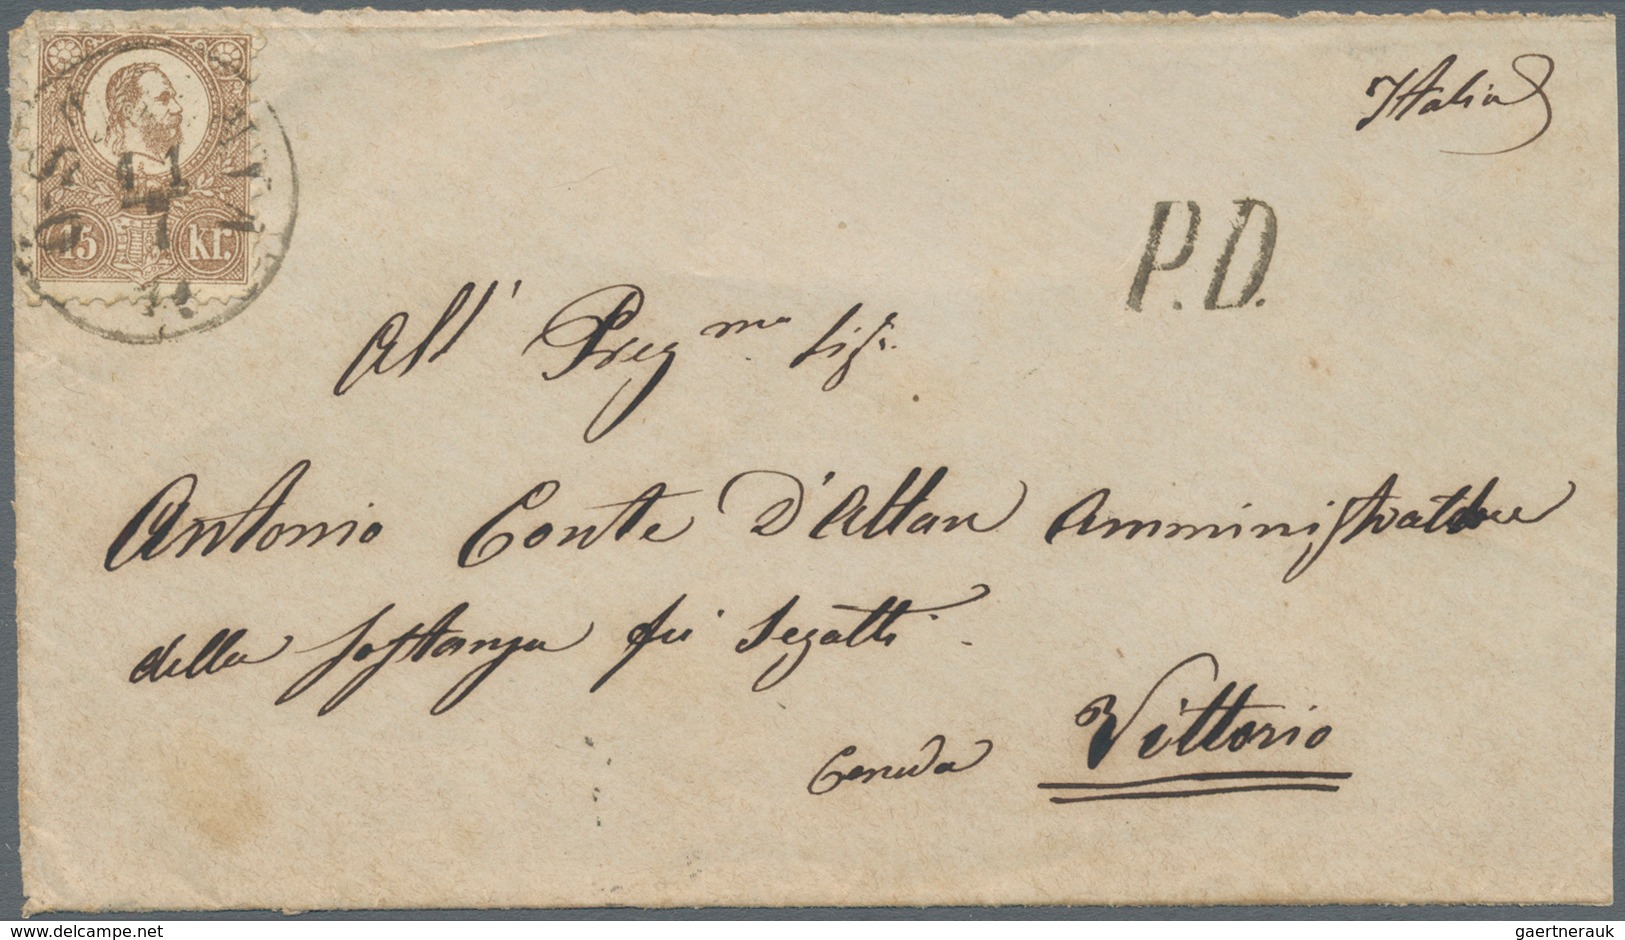 Italia
P.D.
15 Kr.
11
7
All' Preg.ma Sigr.
Antonio Conte D'Altan Amministratore
della Sostanza fu Segatti
Ceneda Vittorio
gaertnerauk
www.delcampe.net